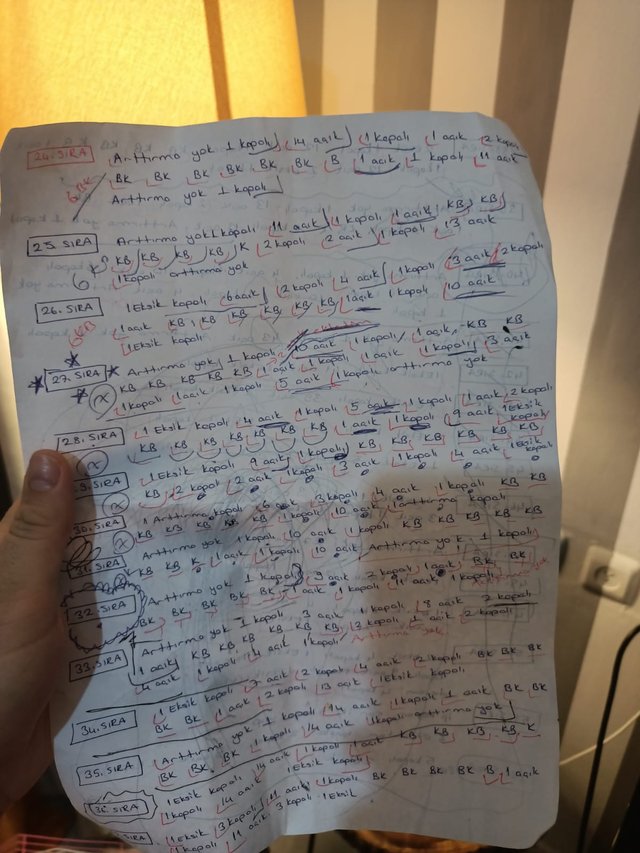 24. SIRA Arttırma yok 1 kapalı 14 açık 1 kapalı 1 açık 2 kapalı
6 BK BK BK BK BK BK B 1 açık 1 kapalı 11 açık
Arttırma yok 1 kapalı
25. SIRA Arttırma yok 1 kapalı 11 açık 1 kapalı 1 açık KB KB
KB KB KB KB K 2 kapalı 2 açık 1 kapalı 13 açık
1 kapalı arttırma yok
26. SIRA 1 Eksik kapalı 6 açık 2 kapalı 4 açık 1 kapalı 3 açık 2 kapalı
6 KB 1 açık KB KB KB KB KB KB 1 açık 1 kapalı 10 açık
1 Eksik kapalı
27. SIRA Arttırma yok 1 kapalı 10 açık 1 kapalı 1 açık KB KB
x KB KB KB KB KB 1 açık 1 kapalı 1 açık 1 kapalı 3 açık
1 kapalı 1 açık 1 kapalı 5 açık 1 kapalı arttırma yok
28. SIRA 1 Eksik kapalı 4 açık 1 kapalı 5 açık 1 kapalı 1 açık 2 kapalı
x KB KB KB KB KB KB KB 1 açık 1 kapalı 9 açık 1 Eksik kapalı
9. SIRA 1 Eksik kapalı 9 açık 1 kapalı 1 açık KB KB KB KB KB
x KB 2 kapalı 2 açık 1 kapalı 3 açık 1 kapalı 4 açık 1 Eksik kapalı
30. SIRA 1 Arttırma kapalı 6 açık 3 kapalı 4 açık 1 kapalı KB KB
x KB KB KB KB KB 1 kapalı 10 açık 1 arttırma kapalı
31. SIRA Arttırma yok 1 kapalı 10 açık 1 kapalı KB KB KB KB
x KB KB K 1 açık 1 kapalı 10 açık Arttırma yok 1 kapalı
32. SIRA Arttırma yok 1 kapalı 9 açık 2 kapalı 1 açık BK BK
BK BK BK BK 1 açık 1 kapalı 9 açık 1 kapalı
33. SIRA Arttırma yok 1 kapalı 3 açık 1 kapalı 8 açık 2 kapalı
1 açık KB KB KB KB KB KB 2 kapalı 1 açık 2 kapalı
4 açık 1 kapalı 4 açık 1 kapalı Arttırma yok
34. SIRA 1 Eksik kapalı açık 2 kapalı 4 açık 2 kapalı BK BK BK
BK BK 1 açık 2 kapalı 13 açık 1 Eksik kapalı
35. SIRA Arttırma yok 1 kapalı 14 açık 1 kapalı 1 açık BK BK
BK BK BK 1 kapalı 14 açık 1 kapalı arttırma yok
36. SIRA 1 Eksik kapalı 14 açık 1 kapalı 1 açık KB KB KB KB K
1 kapalı 14 açık 1 Eksik kapalı
SIRA 1 Eksik 3 kapalı 11 açık 1 kapalı BK BK BK BK B 1 açık
1 kapalı 11 açık 3 kapalı 1 Eksik